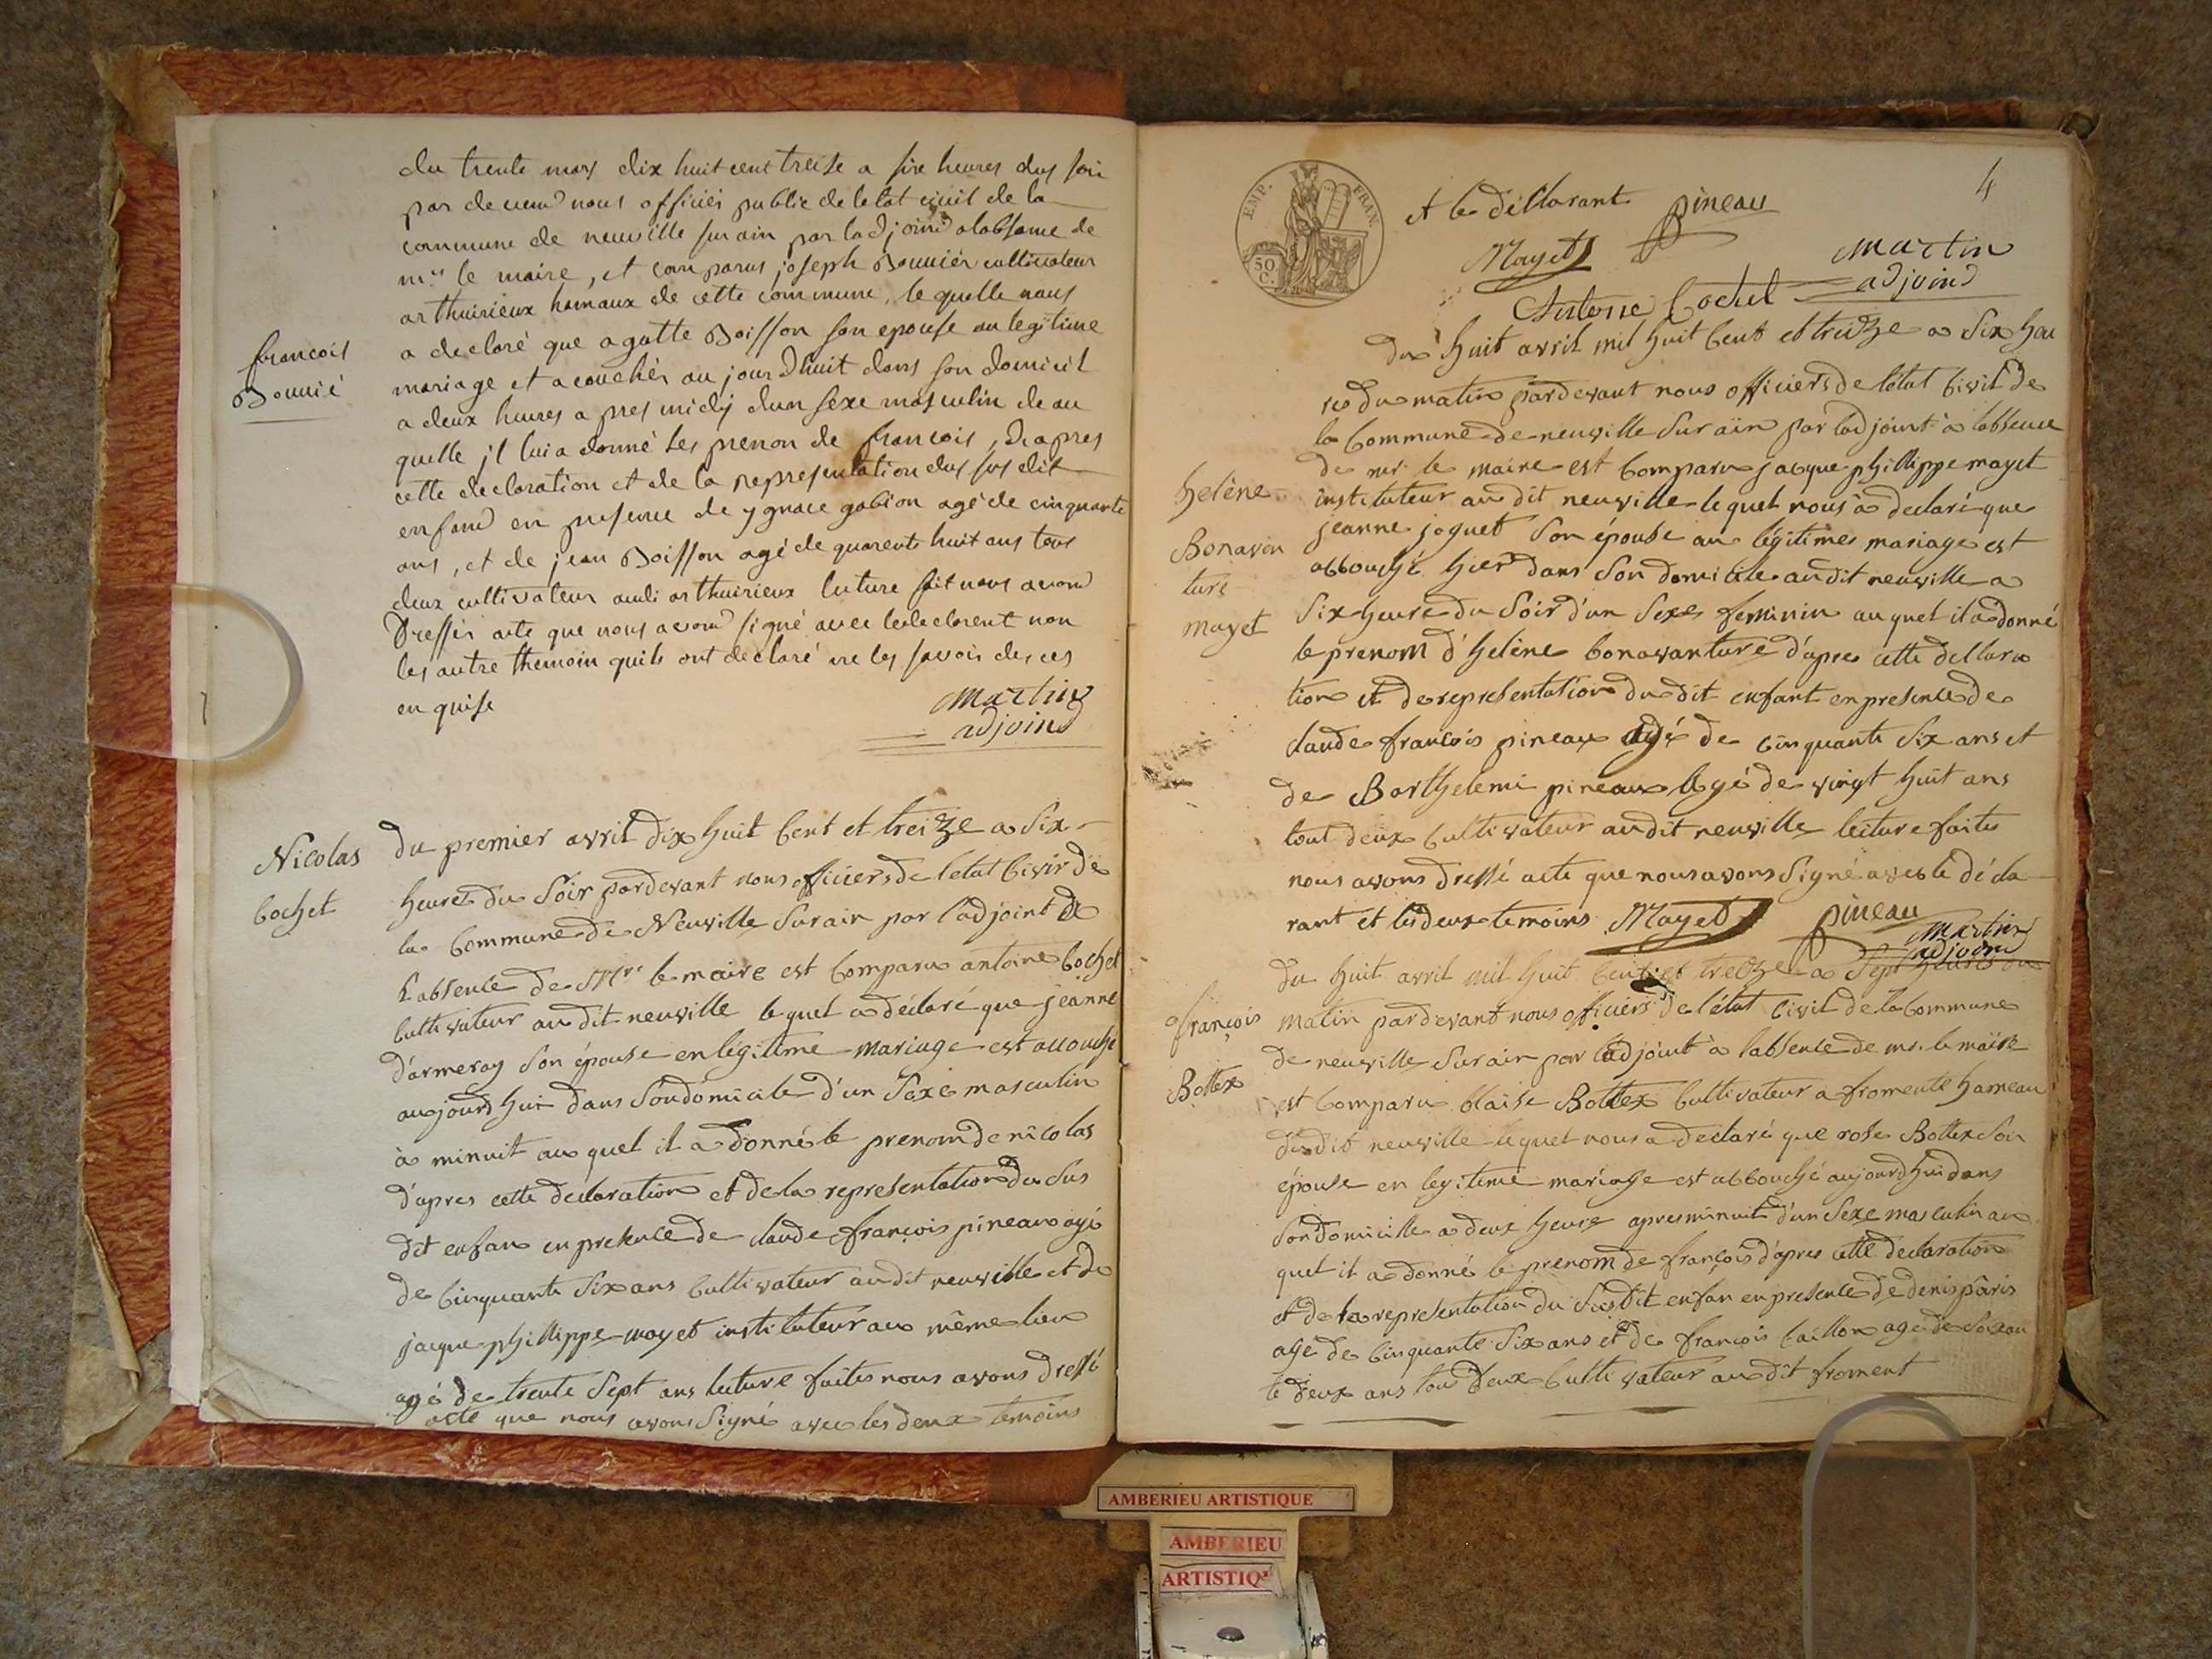 du trente mars dix huit cent treise a sixe heures dus soir
par devend nous officier public deletat civil de la
commune de neuville sur ain par ladjoind alabsame de
mr. le maire, et comparus joseph Bouvier cultivateur
arthuirieux hamaux de cette commune, le quelle nous
a declaré que agatte Boisson son epouse en legitime
françois
Bouvié
mariage et acouchér au jourdhuit dans son domicil
a deux heures apres midy dun sexe masculin de au
quelle jl lui a donné les prenon de francois, daprés
cette declaration et de la representation dus sus dit
enfand en presence de ygnace gobion agé de cinquante
ans, et de jean Boisson agé de quarente huit ans tous
deux cultivateur audi arthuirieux luture fait nous avond
Dressér acte que nous avond signé avec le declarent non
les autre themoin quils ont declaré ne les savoir de ces
en quise
martin
adjoind
Nicolas
Cochet
du premier avril dix huit Cent et treize a Six
heures du Soir pardevant nous officiers de letat Civir de
la Commune de Neuville Sur ain par l'adjoint de
L'absence de Mr. le maire est Comparu antoine Cochet
Cultivateur au dit neuville le quel a déclaré que jeanne
d'armeray Son épouse en légitime mariage est accouché
aujourdhui dans Son domicile d'un Sexe masculin
à minuit au quel il a donné le prenom de nicolas
d'apres cette déclaration et de la representation du Sus
dit enfan en presence de claude françois pineau agé
de Cinquante Six ans Cultivateur au dit neuville et de
jacque phillippe mayet instituteur au même lieu
agé de trente Sept ans lecture faites nous avons dressé
acte que nous avons Signé avec les deux temoins
4
EMP. FRAN.
50 C.
et le déclarant pineau
Mayet
martin
adjoind
Antoine Cochet
du huit avril mil huit Cent et treize a Six heu
re du matin pardevant nous officiers de l'état Civil de
la Commune de neuville Sur ain par ladjoint à labsence
de mr. le maire est Comparu jacque phillippe mayet
instituteur au dit neuville le quel nous à declaré que
helène
Bonaven
ture
mayet
jeanne joguet Son épouse au légitimes mariage est
accouché hier dans Son domicile au dit neuville a
Six heure du Soir d'un Sexe feminin au quel il a donné
le prenom d'helène bonavanture d'apres cette declara
tion et de representation du dit enfant en presence de
claude françois pineau agé de cinquante Six ans et
de Barthelemi pineau agé de vingt huit ans
tout deux Cultivateur au dit neuville lecture faites
nous avons dressé acte que nous avons Signé avec le décla
rant et les deux temoins Mayet pineau
martin
adjoind
du huit avril mil huit Cent et treize a Sept heures du
françois
Bottex
matin pardevant nous officiers de l'état Civil de la Commune
de neuville Sur ain par ladjoint à labsence de mr. le maire
est Comparu blaise Bottex Cultivateur a fromente hameau
du dit neuville lequel nous a déclaré que rose Bottex Son
épouse en legitime mariage est accouché aujourdhui dans
Son domicille a deux heure apres minuit d'un Sexe masculin au
quel il a donné le prenom de françois d'apres cette declaration
et de la representation du Susdit enfan en presence de denis pâris
agé de Cinquante Six ans et de françois Caillon agé de Soixan
te deux ans tou deux Cultivateur au dit froment
AMBERIEU ARTISTIQUE
AMBERIEU
ARTISTIQ